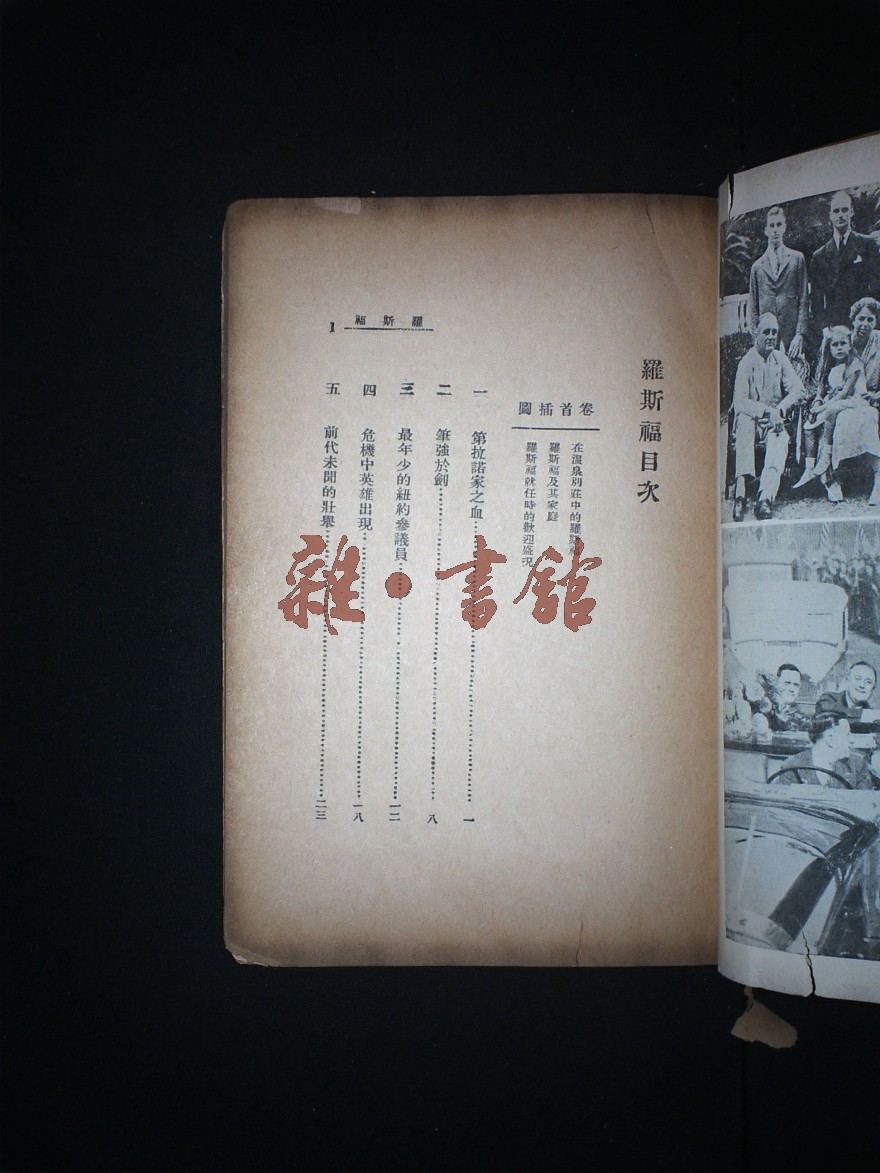 羅斯福目次
卷首插圖
在溫泉別莊中的羅斯福
羅斯福及其家庭
羅斯福就任時的歡迎盛況
一 第拉諾家之血 一
二 筆強於劍 八
三 最年少的紐約參議員 一二
四 危機中英雄出現 一八
五 前代未聞的壯舉 二三
羅斯福
1
雜·書館